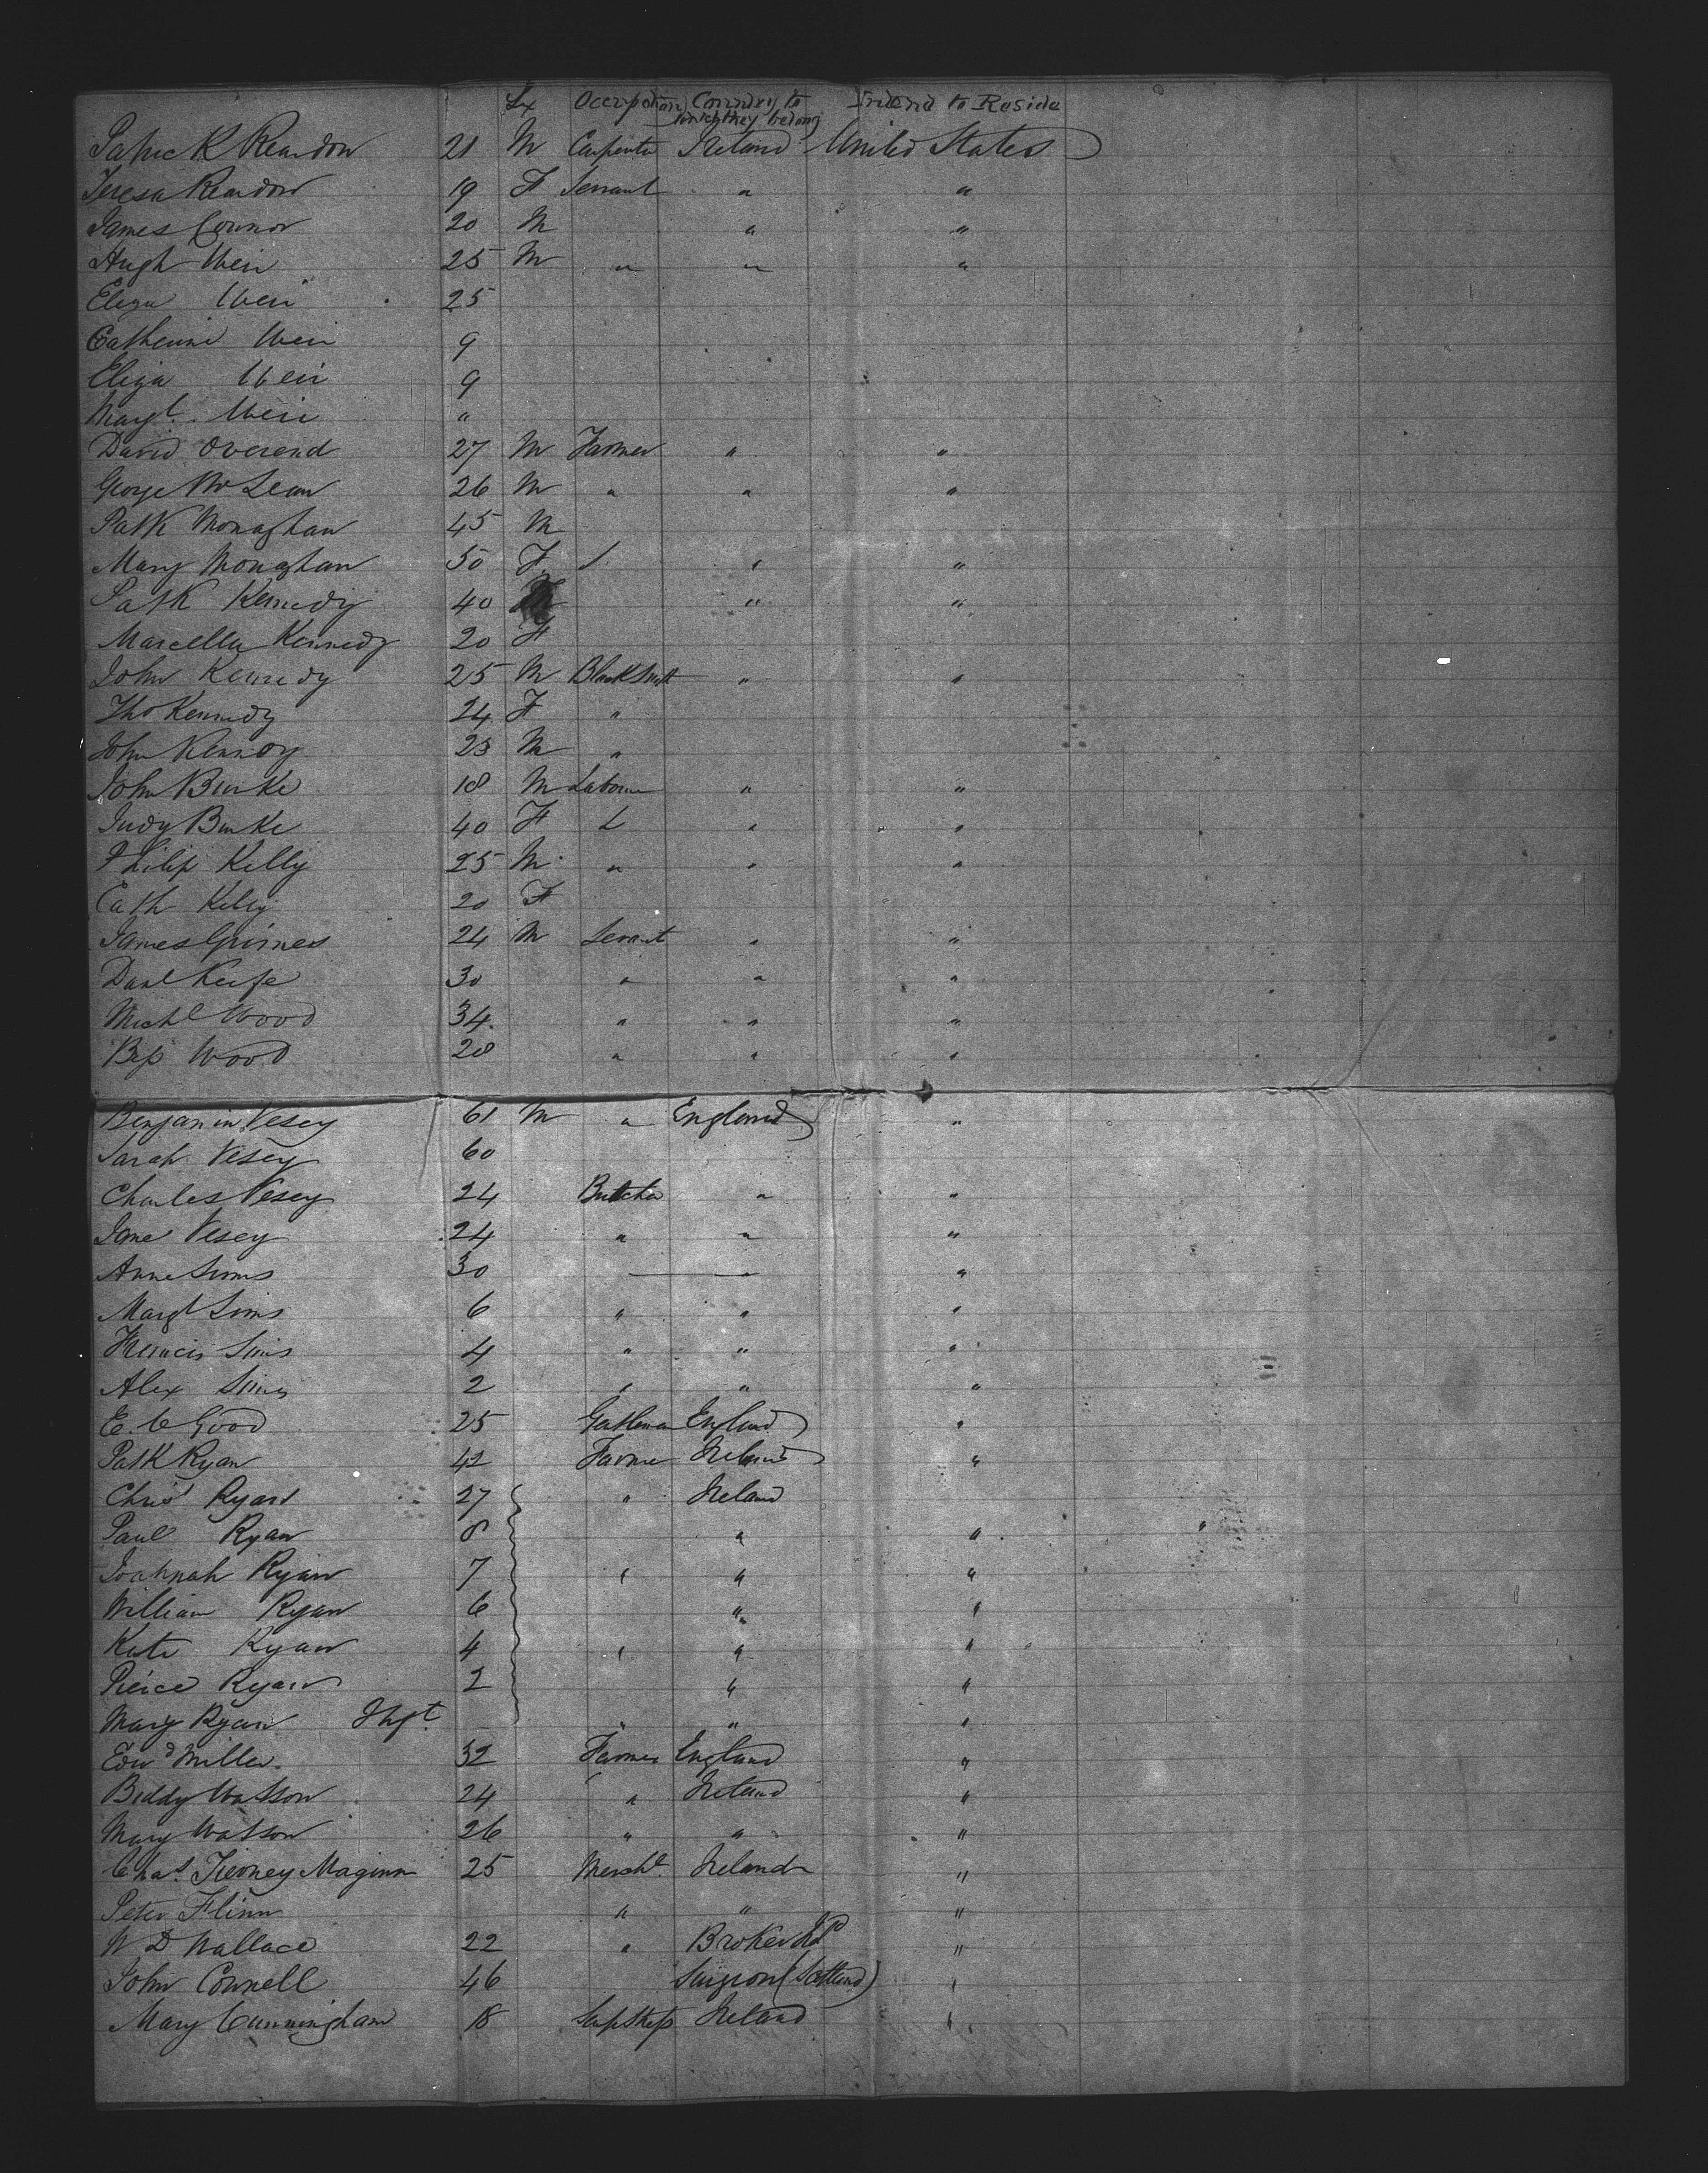 Sex Occupation Country to which they belong Intend to Reside
Patrick Reardon 21 M Carpenter Ireland United States
Teresa Reardon 19 F Servant " "
James Connor 20 M " "
Hugh Weir 25 M " " "
Eliza Weir 25
Catherine Weir 9
Eliza Weir 9
Margt. Weir "
David Overend 27 M Farmer " "
George McLean 26 M " " "
Patk Monaghan 45 M
Mary Monaghan 50 F " "
Patk Kennedy 40 M " "
Marcella Kennedy 20 F
John Kennedy 25 M BlackSmith " "
Tho Kennedy 24 F "
John Kennedy 23 M "
John Burke 18 M Laborer " "
Judy Burke 40 F L " "
Philip Kelly 25 M " " "
Cath Kelly 20 F
James Guiness 24 M Servant " "
Danl Keefe 30 " " "
Michl Wood 34 " " "
Bess Wood 28 " " "
Benjamin Vesey 61 M " England "
Sarah Vesey 60
Charles Vesey 24 Butcher " "
Jane Vesey 24 " " "
Anne Simms 30 "
Margt Sims 6 " " "
Francis Sims 4 " " "
Alex Sims 2 " " "
E. C Good 25 Gentleman England "
Patk Ryan 42 Farmer Ireland "
Chris Ryan 27 " Ireland
Paul Ryan 8 " "
Joahnah Ryan 7 " " "
William Ryan 6 " "
Kate Ryan 4 " " "
Pierce Ryan 2 " "
Mary Ryan Inft. " " "
Edwd Miller 32 Farmer England "
Biddy Watson 24 " Ireland "
Mary Watson 26 " " "
Chas. Tierney Maginn 25 Mercht. Ireland "
Peter Flinn " " "
W D Wallace 22 " Broker "
John Connell 46 Surgeon (Scotland) "
Mary Cunningham 18 Ireland "